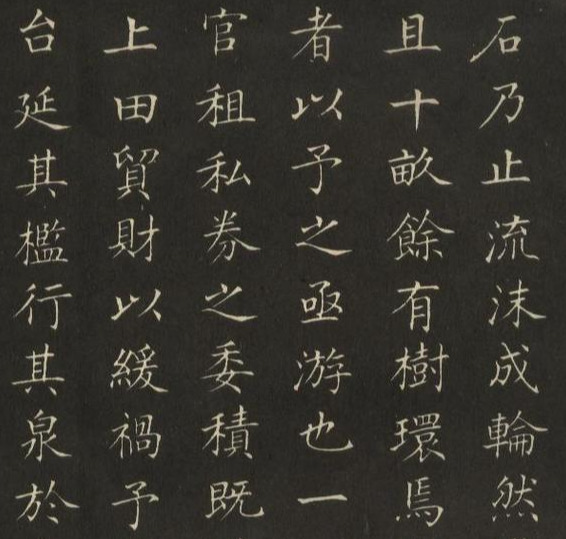 石乃止流沫成輪然
且十畝餘有樹環焉
者以予之亟游也一
官租私券之委積既
上田貿財以緩禍予
台延其檻行其泉於